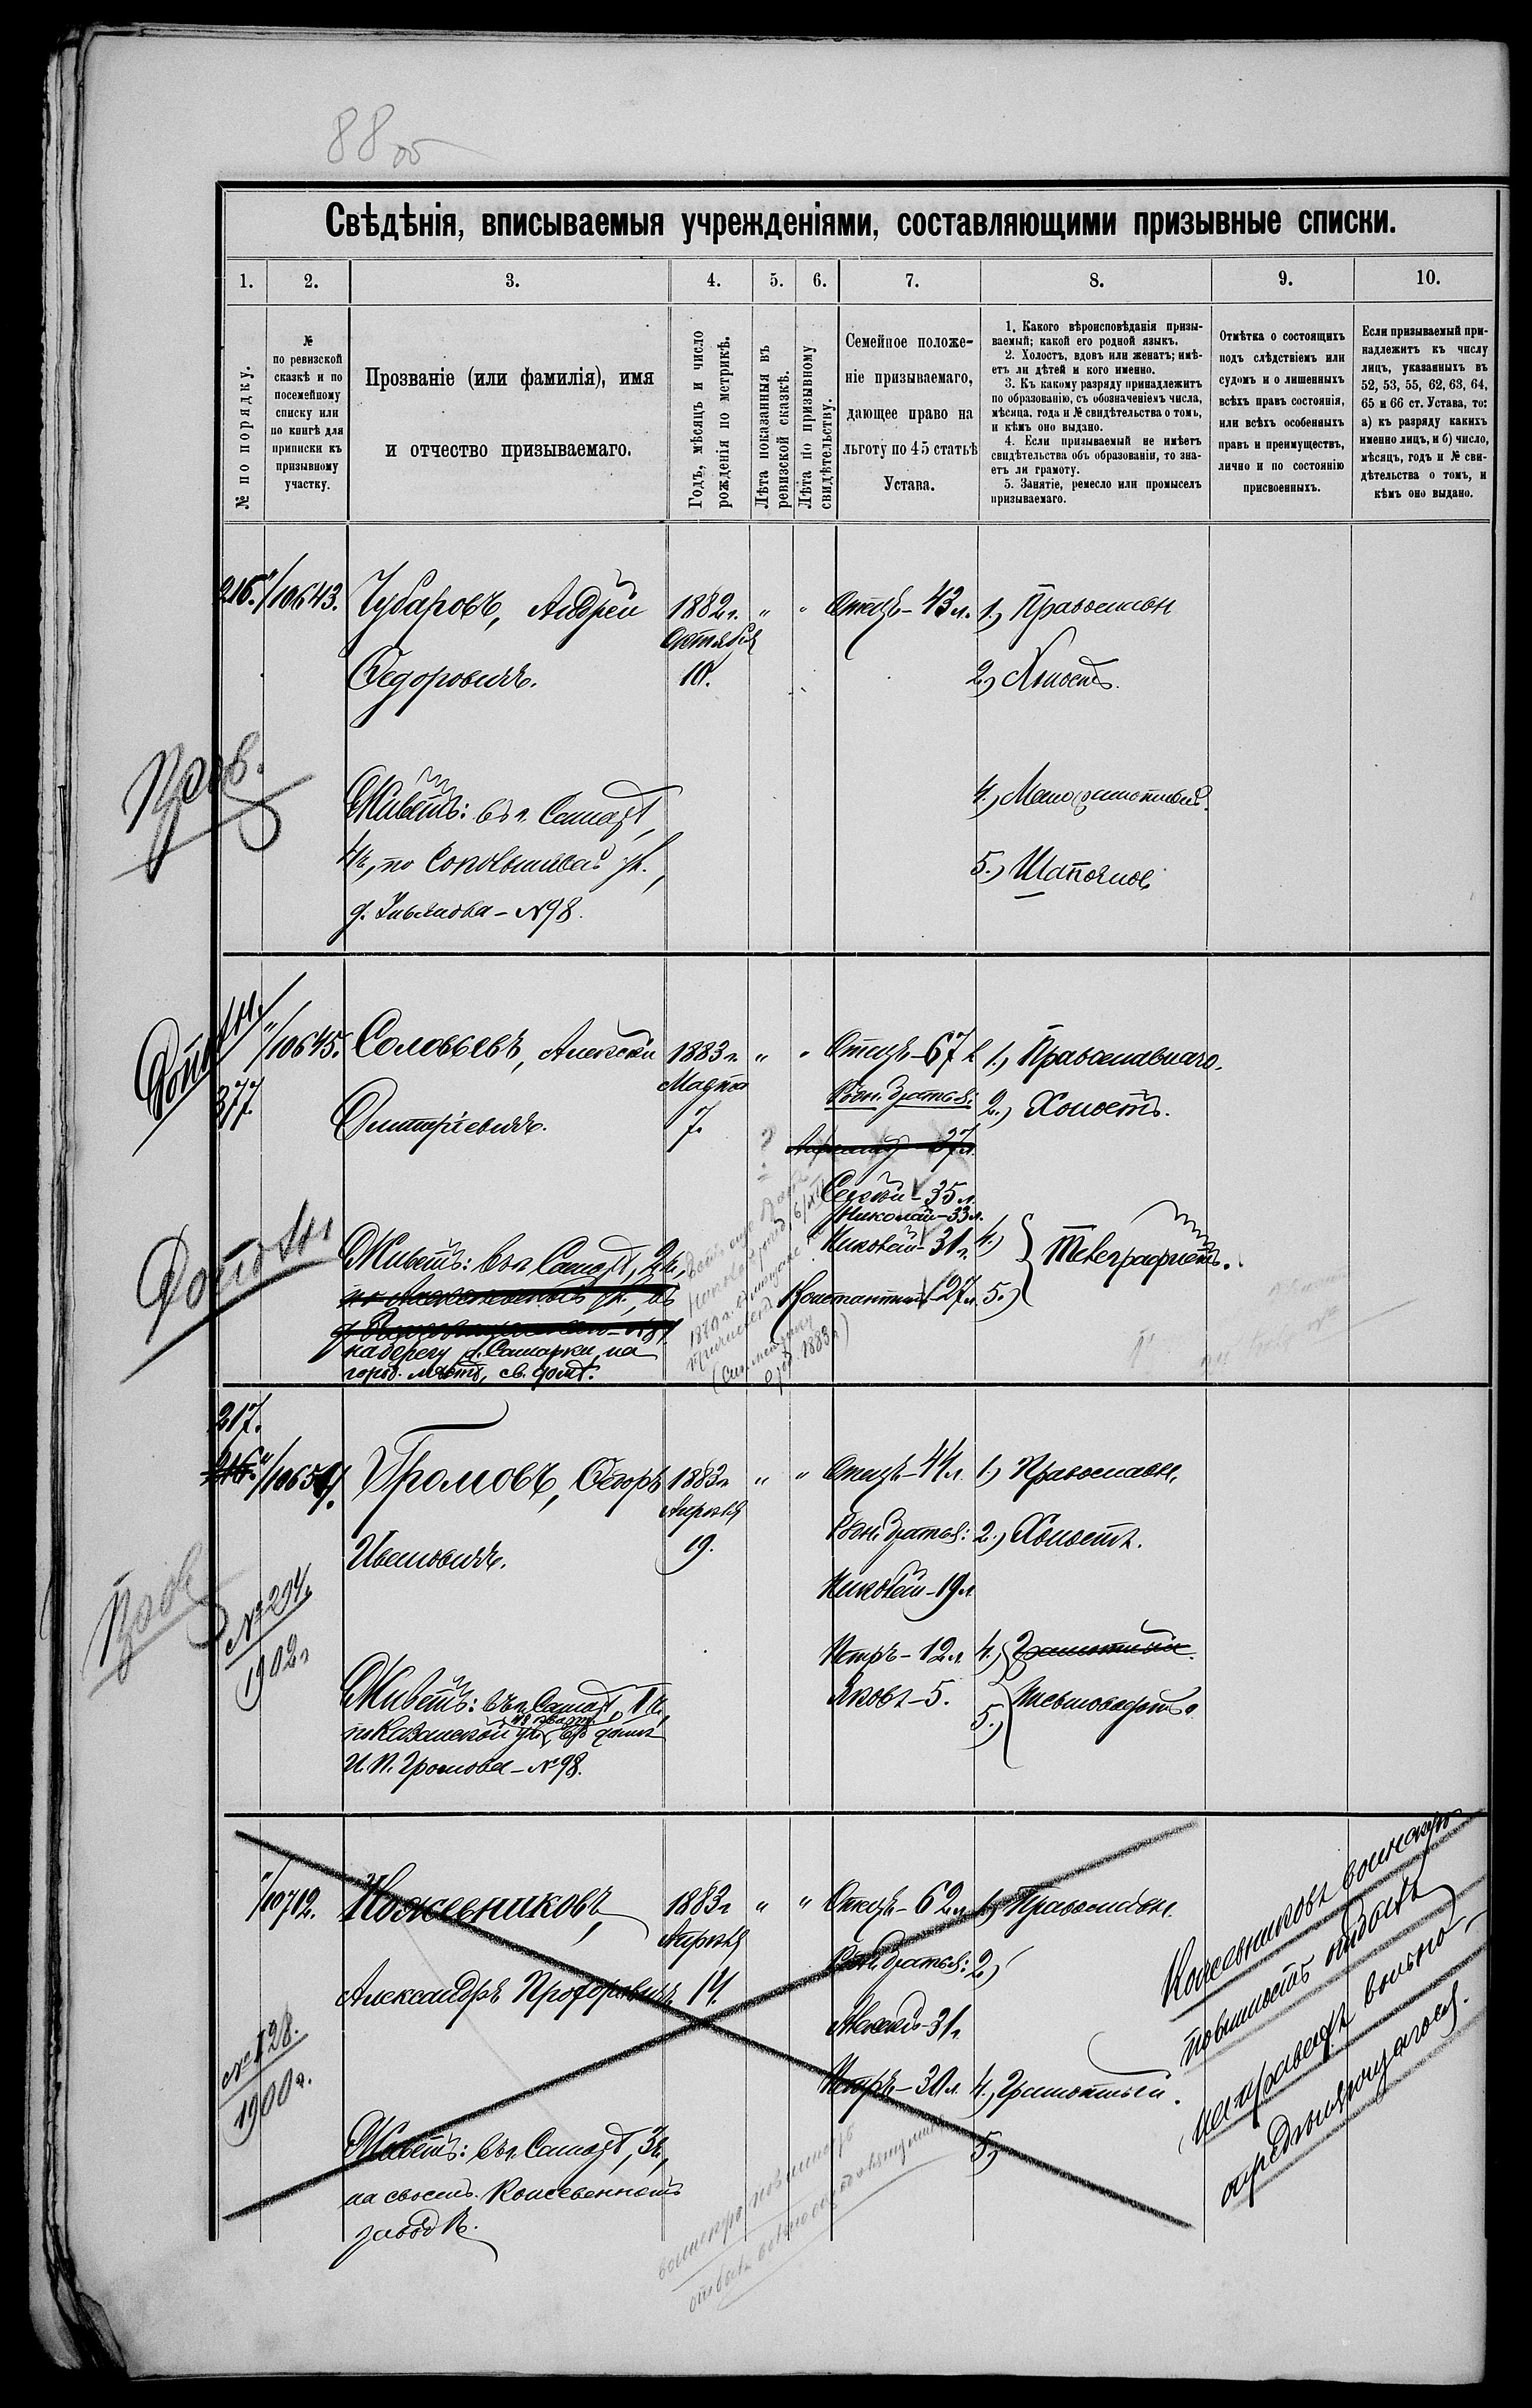 88 об
Свѣдѣнія, вписываемыя учрежденіями, составляющими призывные списки.
1. 2. 3. 4. 5. 6. 7. 8. 9. 10.
№ по порядку.
№
по ревизской
сказкѣ и по
посемейному
списку или
по книгѣ для
приписки къ
призывному
участку.
Прозваніе (или фамилія), имя
и отчество призываемаго.
Годъ, мѣсяцъ и число
рожденія по метрикѣ.
Лѣта показанныя въ
ревизской сказкѣ.
Лѣта по призывному
свидѣтельству.
Семейное положе-
ніе призываемаго,
дающее право на
льготу по 45 статьѣ
Устава.
1. Какого вѣроисповѣданія призы-
ваемый; какой его родной языкъ.
2. Холостъ, вдовъ или женатъ; имѣ-
етъ ли дѣтей и кого именно.
3. Къ какому разряду принадлежитъ
по образованію, съ обозначеніемъ числа,
мѣсяца, года и № свидѣтельства о томъ,
и кѣмъ оно выдано.
4. Если призываемый не имѣетъ
свидѣтельства объ образованіи, то зна-
етъ ли грамоту.
5. Занятіе, ремесло или промыселъ
призываемаго.
Отмѣтка о состоящихъ
подъ слѣдствіемъ или
судомъ и о лишенныхъ
всѣхъ правъ состоянія,
или всѣхъ особенныхъ
правъ и преимуществъ,
лично и по состоянію
присвоенныхъ.
Если призываемый при-
надлежитъ къ числу
лицъ, указанныхъ въ
52, 53, 55, 62, 63, 64,
65 и 66 ст. Устава, то:
а) къ разряду какихъ
именно лицъ, и б) число,
мѣсяцъ, годъ и № сви-
дѣтельства о томъ, и
кѣмъ оно выдано.
216. "/10643. Чубаровъ, Андрей 1882 г. " " Отецъ - 43 л. 1.) Православн
Октября
Федоровичъ. 10. 2.) Холостъ.
Живетъ: въ г. Самарѣ, 4.) Малограмотный.
4 ч., по ул.,
5.) Шапочное
д. - № 98.
377. "/10645. Соловьевъ, Алексѣй 1883 г. " " Отецъ - 67 л 1.) Православнаго.
Марта Родн. братья:
Дмитріевичъ. 7. 2.) Холостъ.
37 л.
Сергѣй - 35 л.
Николай - 33 л.
Живетъ: въ г. Самарѣ, 2 ч., 31 г. 4.) Телеграфистъ.
Константинъ - 27 л. 5.)
на берегу р. Самарки, на
город. мѣстѣ, св. домъ.
217.
216. "/10654. Громовъ, Федоръ 1883 г. " " Отецъ - 44 л. 1.) Православн.
Апрѣля
Ивановичъ. 19. Родн. братья: 2.) Холостъ.
Николай - 19 л.
№ 294
1902 г.
Петръ - 12 л. 4.) Грамотный.
Живетъ: въ г. Самарѣ, 1 ч., Яковъ - 5. 5.) Письмоводит.
по Казанской ул., въ домѣ
И. П. Громова - № 98.
"/10712. Кожевниковъ, 1883 г " " Отецъ - 62 л. 1.) Православн.
Апрѣля
Александръ Прохоровичъ 14. Родн. братья: 2.)
Алексѣй - 31 г.
№ 128.
1900 г.
Петръ - 30 л. 4.) Грамотный.
Живетъ: въ г. Самарѣ, 3 ч., 5.)
на своемъ Кожевенномъ
заводѣ.
Кожевниковъ воинскую
повинность отбываетъ
на правахъ вольно-
опредѣляющагося.